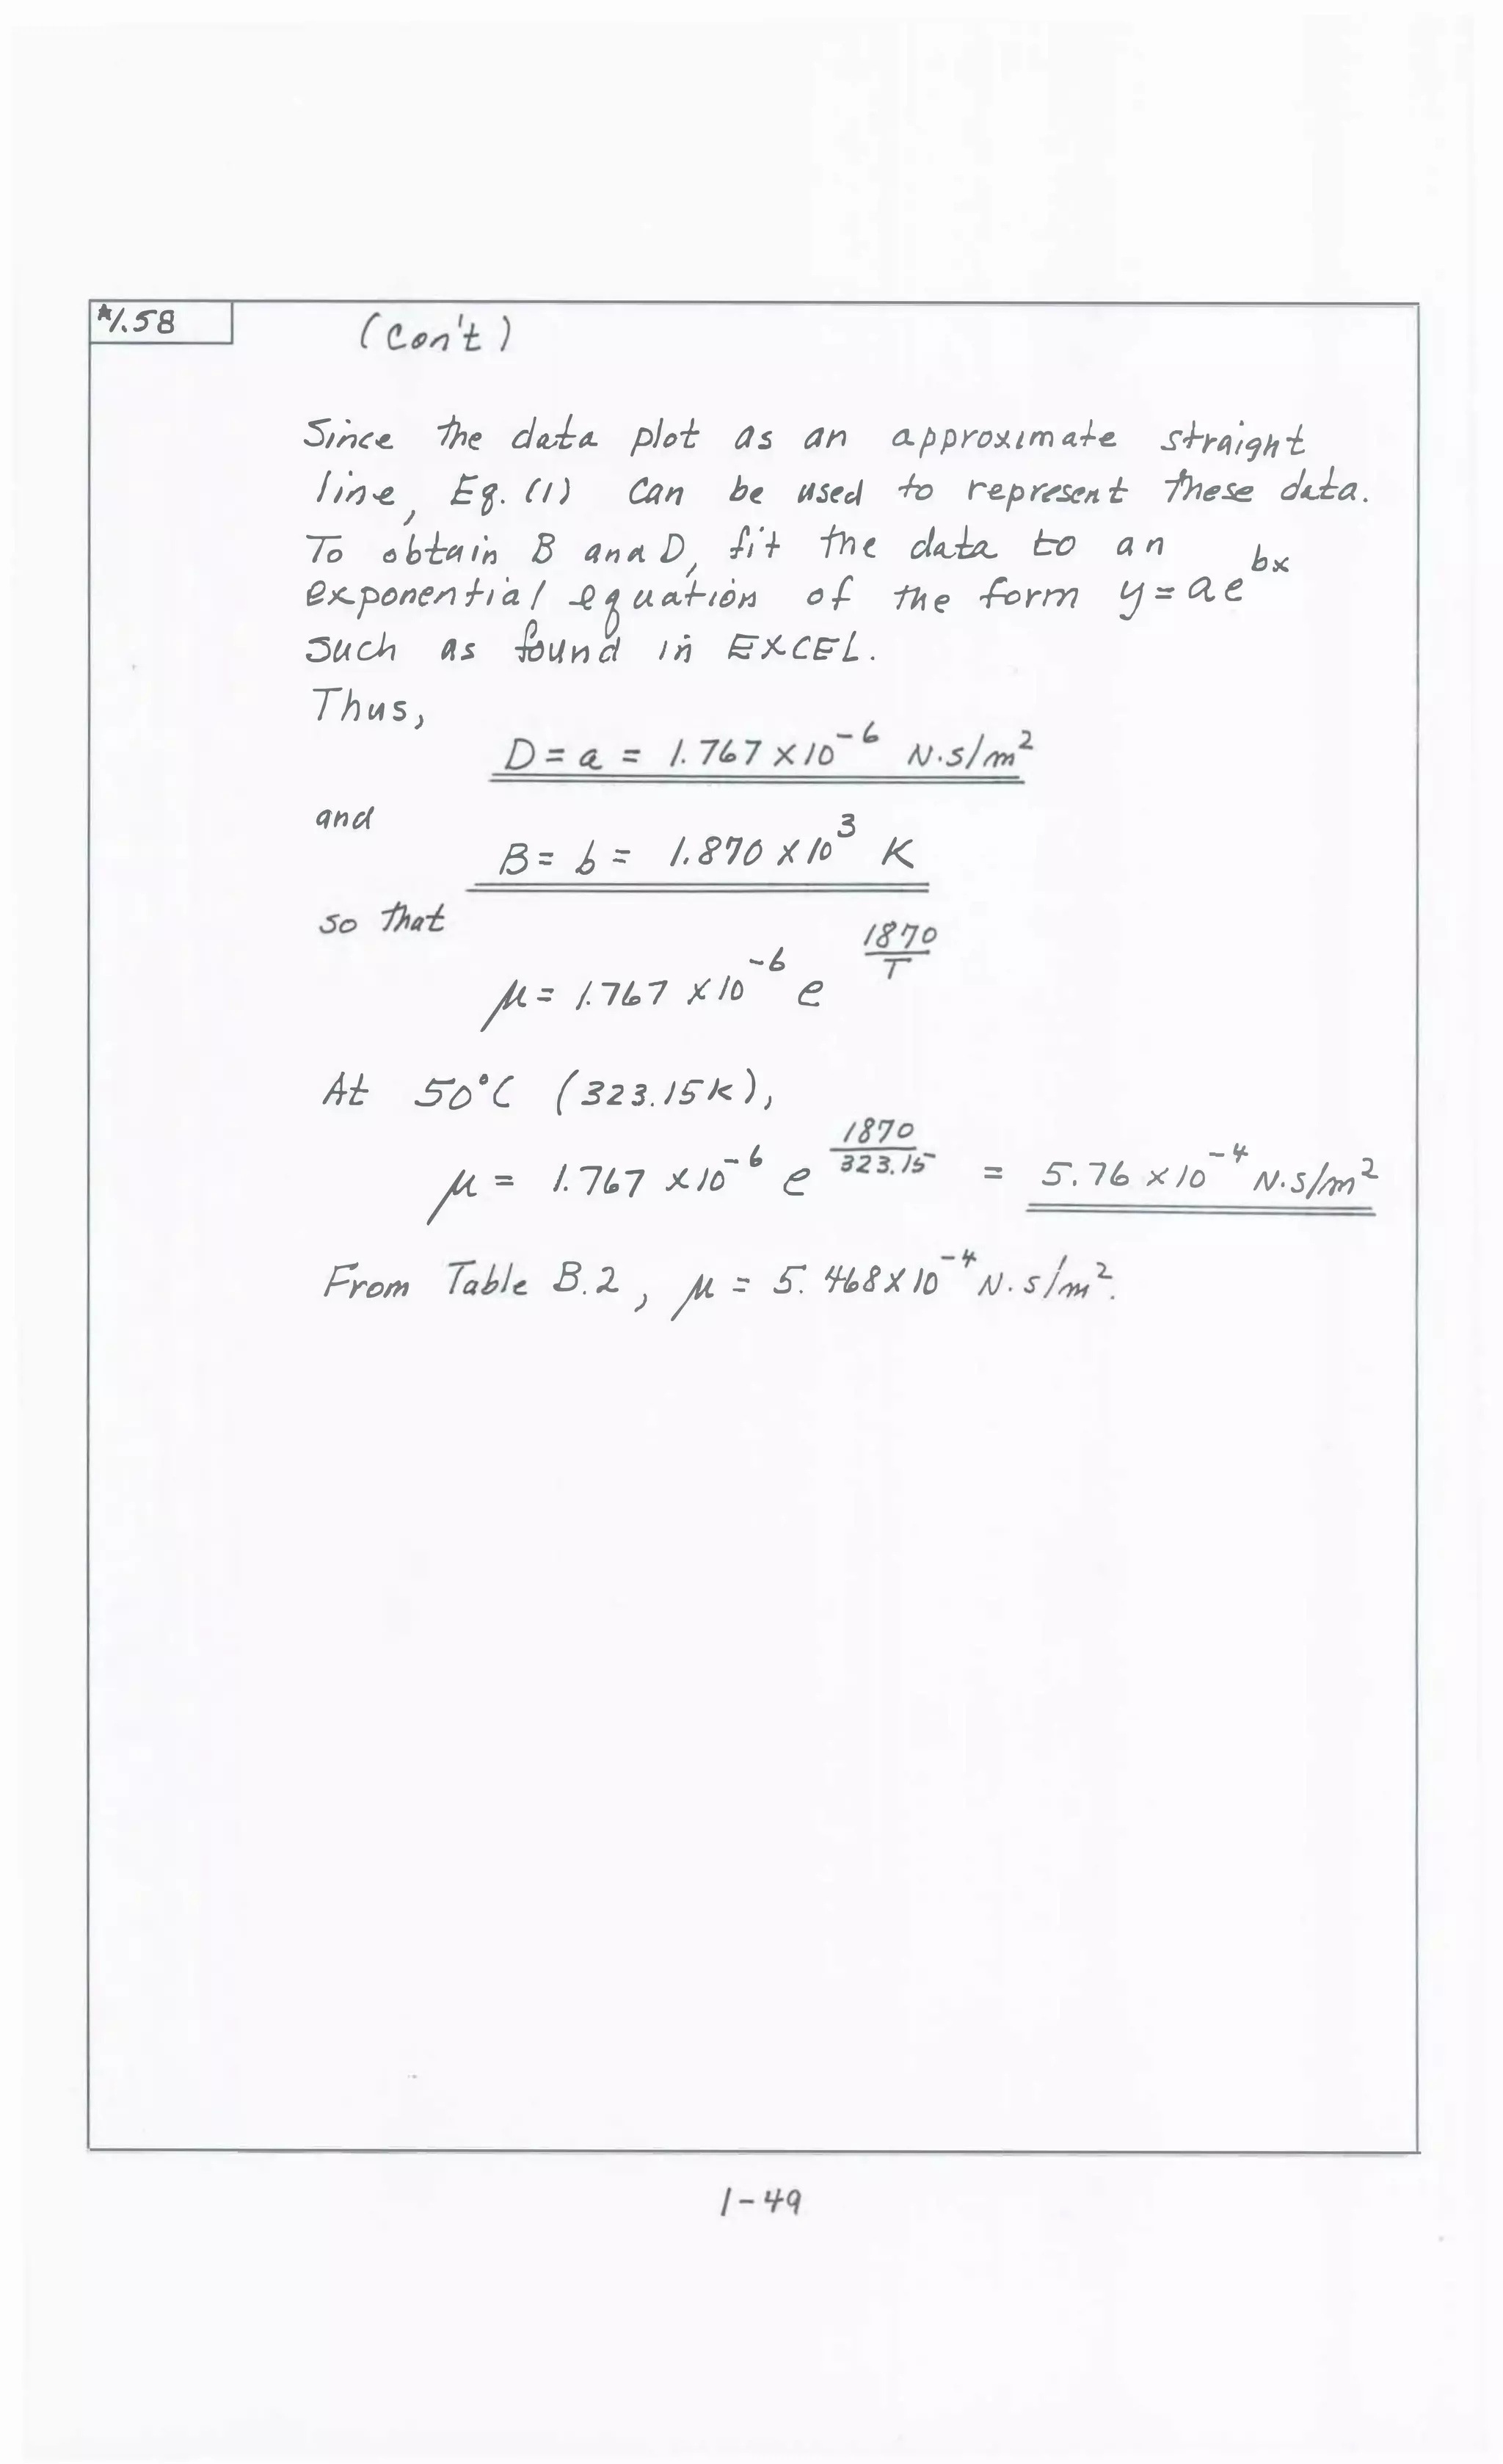 *1.58
(Con't)
Since the data plot as an approximate straight
line, Eq. (1) can be used to represent these data.
To obtain B and D, fit the data to an
exponential equation of the form y = ae^bx
such as found in EXCEL.
Thus,
D = a = 1.767 x 10^-6 N·s/m^2
and
B = b = 1.870 x 10^3 K
so that
μ = 1.767 x 10^-6 e^1870/T
At 50°C (323.15K),
μ = 1.767 x 10^-6 e^1870/323.15 = 5.76 x 10^-4 N·s/m^2
From Table B.2, μ = 5.468 x 10^-4 N·s/m^2.
1-49